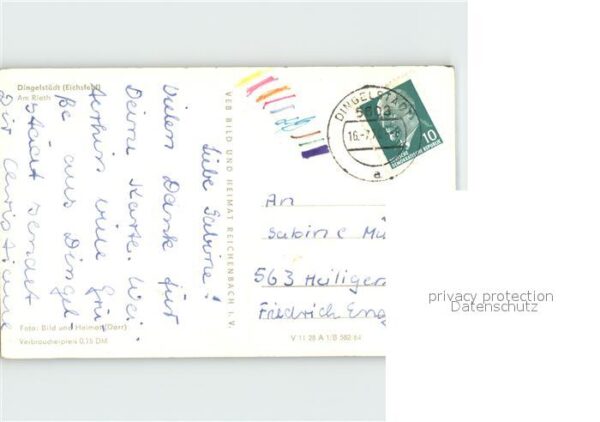 Dingelstädt (Eichsfeld)
Am Rieth
Liebe Sabine!
Vielen Dank für
Deine Karte. Wei-
terhin viele Grü-
ße aus Dingel-
städt sendet
Dir Christiane
VEB BILD UND HEIMAT REICHENBACH I. V.
DINGELSTÄDT
5603
16.-7.
a
10
DEUTSCHE
DEMOKRATISCHE REPUBLIK
An
Sabine Mü
563 Heiligen
Friedrich Eng
Foto: Bild und Heimat (Darr)
Verbraucherpreis 0,15 DM
V 11 28 A 1/B 582/64
privacy protection
Datenschutz